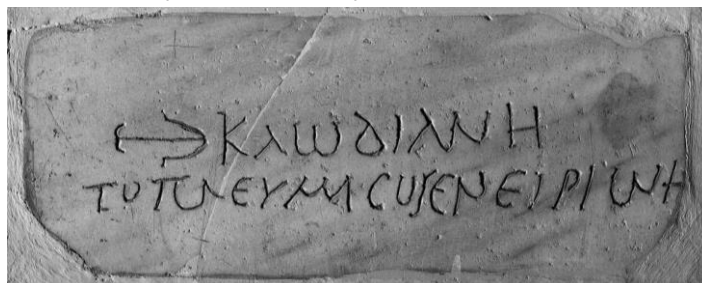 ΚΛΩΔΙΑΝΗ
ΤΟ ΠΝΕΥΜΑ CΟΥ ΕΝ ΕΙΡΙΝΗ